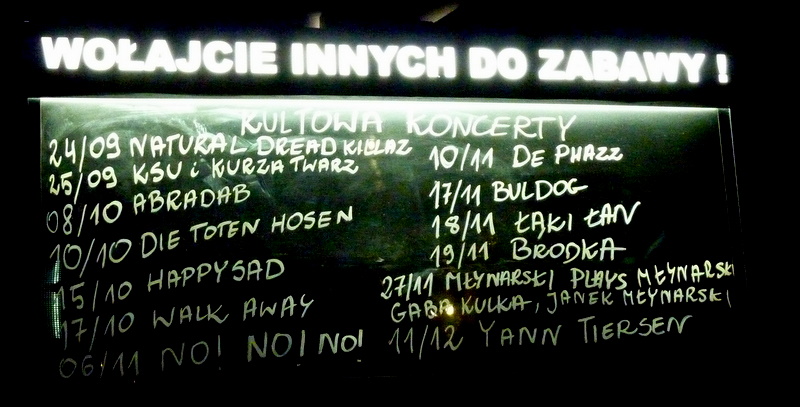 WOŁAJCIE INNYCH DO ZABAWY !
KULTOWA KONCERTY
24/09 NATURAL DREAD KILLAZ
25/09 KSU i KURZA TWARZ
08/10 ABRADAB
10/10 DIE TOTEN HOSEN
15/10 HAPPYSAD
17/10 WALK AWAY
06/11 NO! NO! NO!
10/11 DE PHAZZ
17/11 BULDOG
18/11 ŁĄKI ŁAN
19/11 BRODKA
27/11 MŁYNARSKI PLAYS MŁYNARSKI
GABA KULKA, JANEK MŁYNARSKI
11/12 YANN TIERSEN